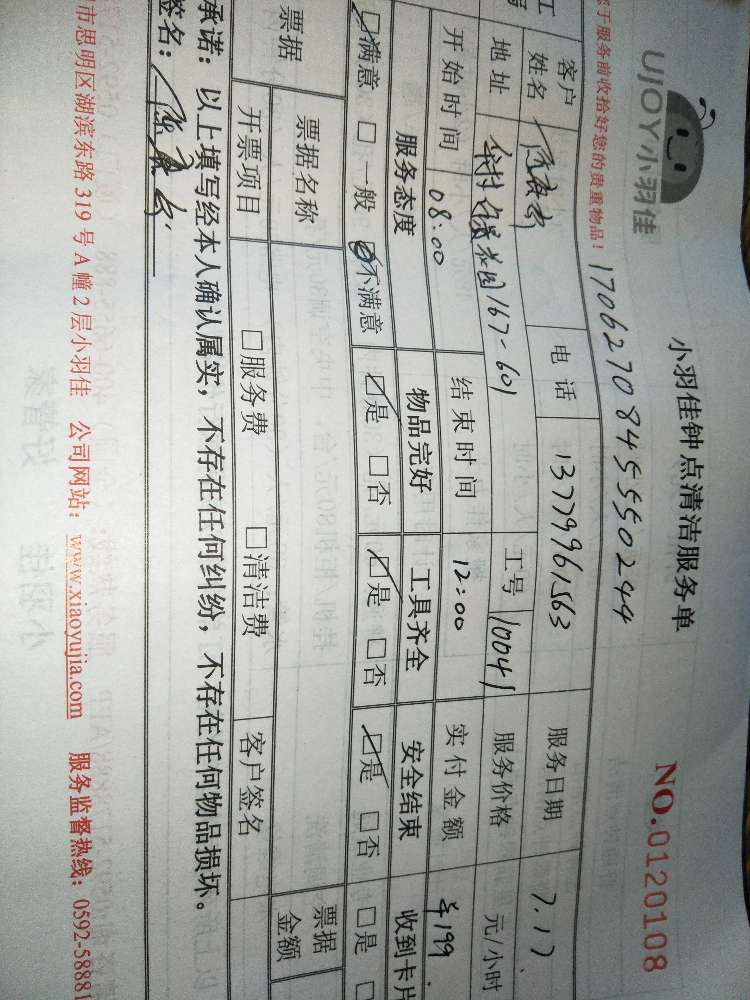 UJOY小羽佳
小羽佳钟点清洁服务单
NO.0120108
您于服务前收拾好您的贵重物品！
17062708455550244
客户姓名 电话 13779961563 服务日期 7.17
地址 167-601 工号 10041 服务价格 元/小时
开始时间 08:00 结束时间 12:00 实付金额 ¥199
服务态度 物品完好 工具齐全 安全结束 收到卡片
☑满意 □一般 □不满意 ☑是 □否 ☑是 □否 ☑是 □否 □是
票据 票据名称 票据金额
开票项目 □服务费 □清洁费 客户签名
承诺：以上填写经本人确认属实，不存在任何纠纷，不存在任何物品损坏。
签名：
市思明区湖滨东路319号A幢2层小羽佳 公司网站：www.xiaoyujia.com 服务监督热线：0592-58881